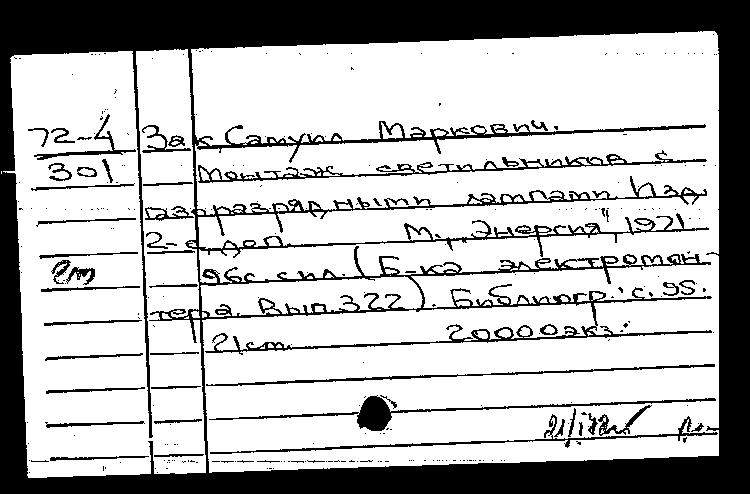 72-4 Зак, Самуил Маркович.
301 Монтаж светильников с
газоразрядными лампами. Изд.
2-е, доп. М., „Энергия", 1971
96с. с ил. (Б-ка электромон-
тера. Вып. 322). Библиогр.: с. 95.
21см. 20000экз.